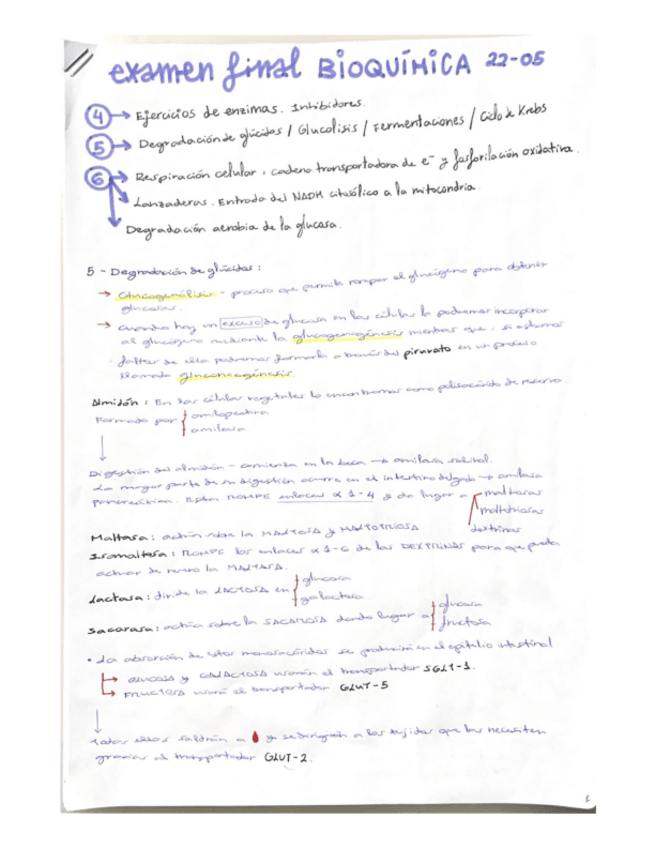 examen final BIOQUÍMICA 22-05
4 → Ejercicios de enzimas. Inhibidores.
5 → Degradación de glúcidos / Glucolisis / Fermentaciones / Ciclo de Krebs
6 → Respiración celular, cadena transportadora de e⁻ y fosforilación oxidativa.
Lanzaderas. Entrada del NADH citosólico a la mitocondria.
Degradación aerobia de la glucosa.
5 - Degradación de glúcidos:
→ Glucogenólisis - proceso que permite romper el glucógeno para obtener
glucosas.
→ Cuando hay un exceso de glucosa en las células la podremos incorporar
al glucógeno mediante la glucogenogénesis mientras que, si estamos
faltos de ella podremos formarla a través del piruvato en un proceso
llamado gluconeogénesis.
Almidón: En las células vegetales lo encontramos como polisacárido de reserva.
Formado por amilopectina
amilosa
Digestión del almidón - comienza en la boca → amilasa salival.
La mayor parte de su digestión ocurre en el intestino delgado → amilasa
pancreática. Esta ROMPE enlaces α 1-4 y da lugar a maltosas
maltotriosas
dextrinas
Maltasa: actúa sobre la MALTOSA y MALTOTRIOSA
Isomaltasa: ROMPE los enlaces α 1-6 de las DEXTRINAS para que pueda
actuar de nuevo la MALTASA.
Lactasa: divide la LACTOSA en glucosa
galactosa
Sacarasa: actúa sobre la SACAROSA dando lugar a glucosa
fructosa
• La absorción de estos monosacáridos se producirá en el epitelio intestinal
→ GLUCOSA y GALACTOSA usarán el transportador SGLT-1.
→ FRUCTOSA usará el transportador GLUT-5
Todos ellos saldrán a y se dirigirán a los tejidos que las necesiten
gracias al transportador GLUT-2.
1